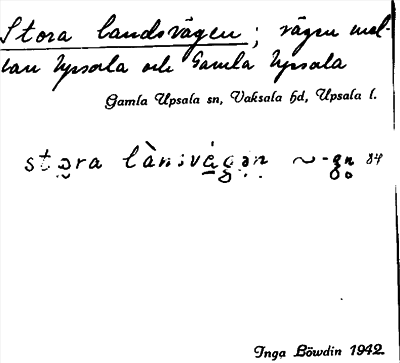 Stora landsvägen; vägen mel-
lan Uppsala och Gamla Uppsala
Gamla Upsala sn, Vaksala hd, Upsala l.
84
Inga Löwdin 1942.